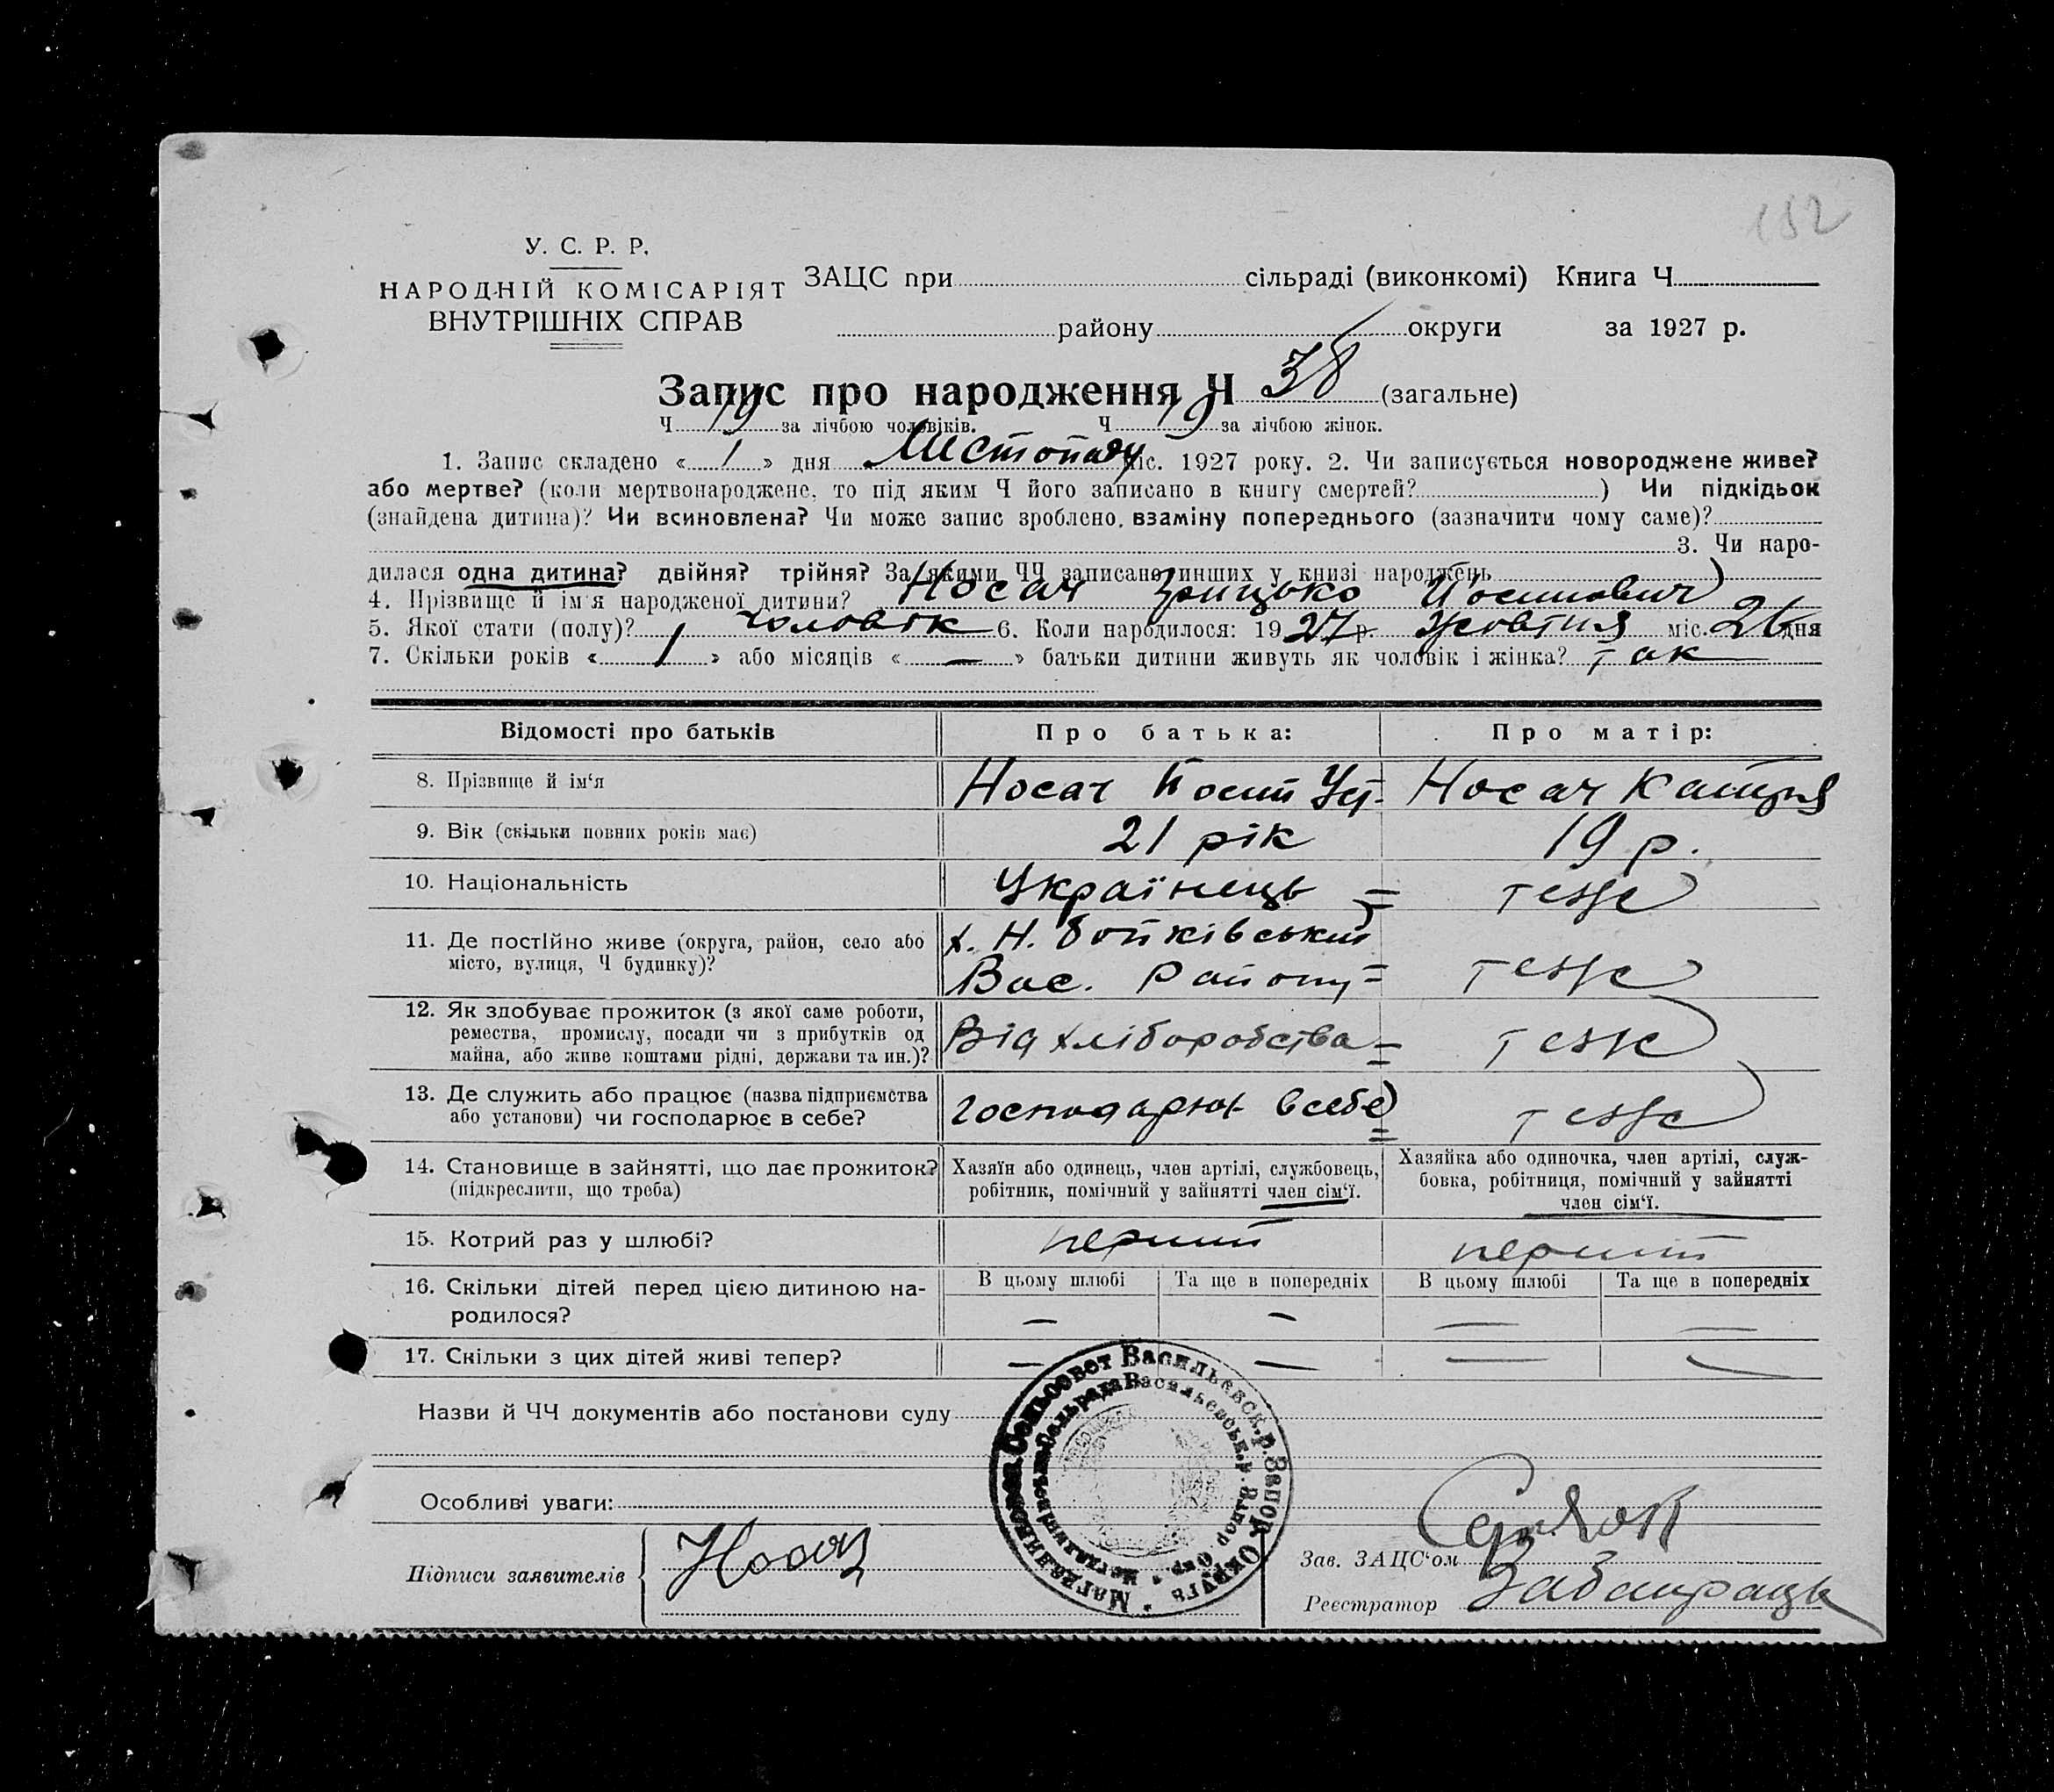 152
У. С. Р. Р.
НАРОДНІЙ КОМІСАРІЯТ
ВНУТРІШНІХ СПРАВ
ЗАЦС при сільраді (виконкомі) Книга Ч.
району округи за 1927 р.
Запис про народження Ч 38 (загальне)
Ч 19 за лічбою чоловіків. Ч 19 за лічбою жінок.
1. Запис складено « 1 » дня Листопаду міс. 1927 року. 2. Чи записується новороджене живе?
або мертве? (коли мертвонароджене, то під яким Ч його записано в книгу смертей? ) Чи підкідьок
(знайдена дитина)? Чи всиновлена? Чи може запис зроблено, взаміну попереднього (зазначити чому саме)?
3. Чи наро-
дилася одна дитина? двійня? трійня? За якими ЧЧ записано инших у книзі народжень
4. Прізвище й ім'я народженої дитини? Носач Грицько Йосипович
5. Якої стати (полу)? чоловік 6. Коли народилося: 1927 р. Жовтня міс. 26 дня
7. Скільки років « 1 » або місяців « — » батьки дитини живуть як чоловік і жінка? так
Відомості про батьків Про батька: Про матір:
8. Прізвище й ім'я Носач Йосип Уст. Носач Катря
9. Вік (скільки повних років має) 21 рік 19 р.
10. Національність Українець = теж
11. Де постійно живе (округа, район, село або
місто, вулиця, Ч будинку)?
х. Н. Бойківський
Вас. Району = теж
12. Як здобуває прожиток (з якої саме роботи,
ремества, промислу, посади чи з прибутків од
майна, або живе коштами рідні, держави та ин.)?
Від хліборобства = теж
13. Де служить або працює (назва підприємства
або установи) чи господарює в себе?
господарює в себе = теж
14. Становище в зайнятті, що дає прожиток?
(підкреслити, що треба)
Хазяїн або одинець, член артілі, службовець,
робітник, помічний у зайнятті член сім'ї.
Хазяйка або одиночка, член артілі, служ-
бовка, робітниця, помічний у зайнятті
член сім'ї.
15. Котрий раз у шлюбі? перший перший
16. Скільки дітей перед цією дитиною на-
родилося?
В цьому шлюбі Та ще в попередніх В цьому шлюбі Та ще в попередніх
— — — —
17. Скільки з цих дітей живі тепер? — — — —
Назви й ЧЧ документів або постанови суду
Особливі уваги:
Підписи заявителів Носач
Зав. ЗАЦС'ом
Реєстратор
Сельсовет Васильевск. р. Запор. Округа